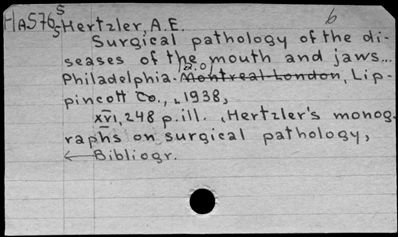 HA576 S S Hertzler, A.E. b
Surgical pathology of the di-
seases of the mouth and jaws...
Philadelphia. Montreal London, Lip-
pincott Co., 1938,
xvi, 248 p. ill. Hertzler's monog
raphs on surgical pathology,
Bibliogr.